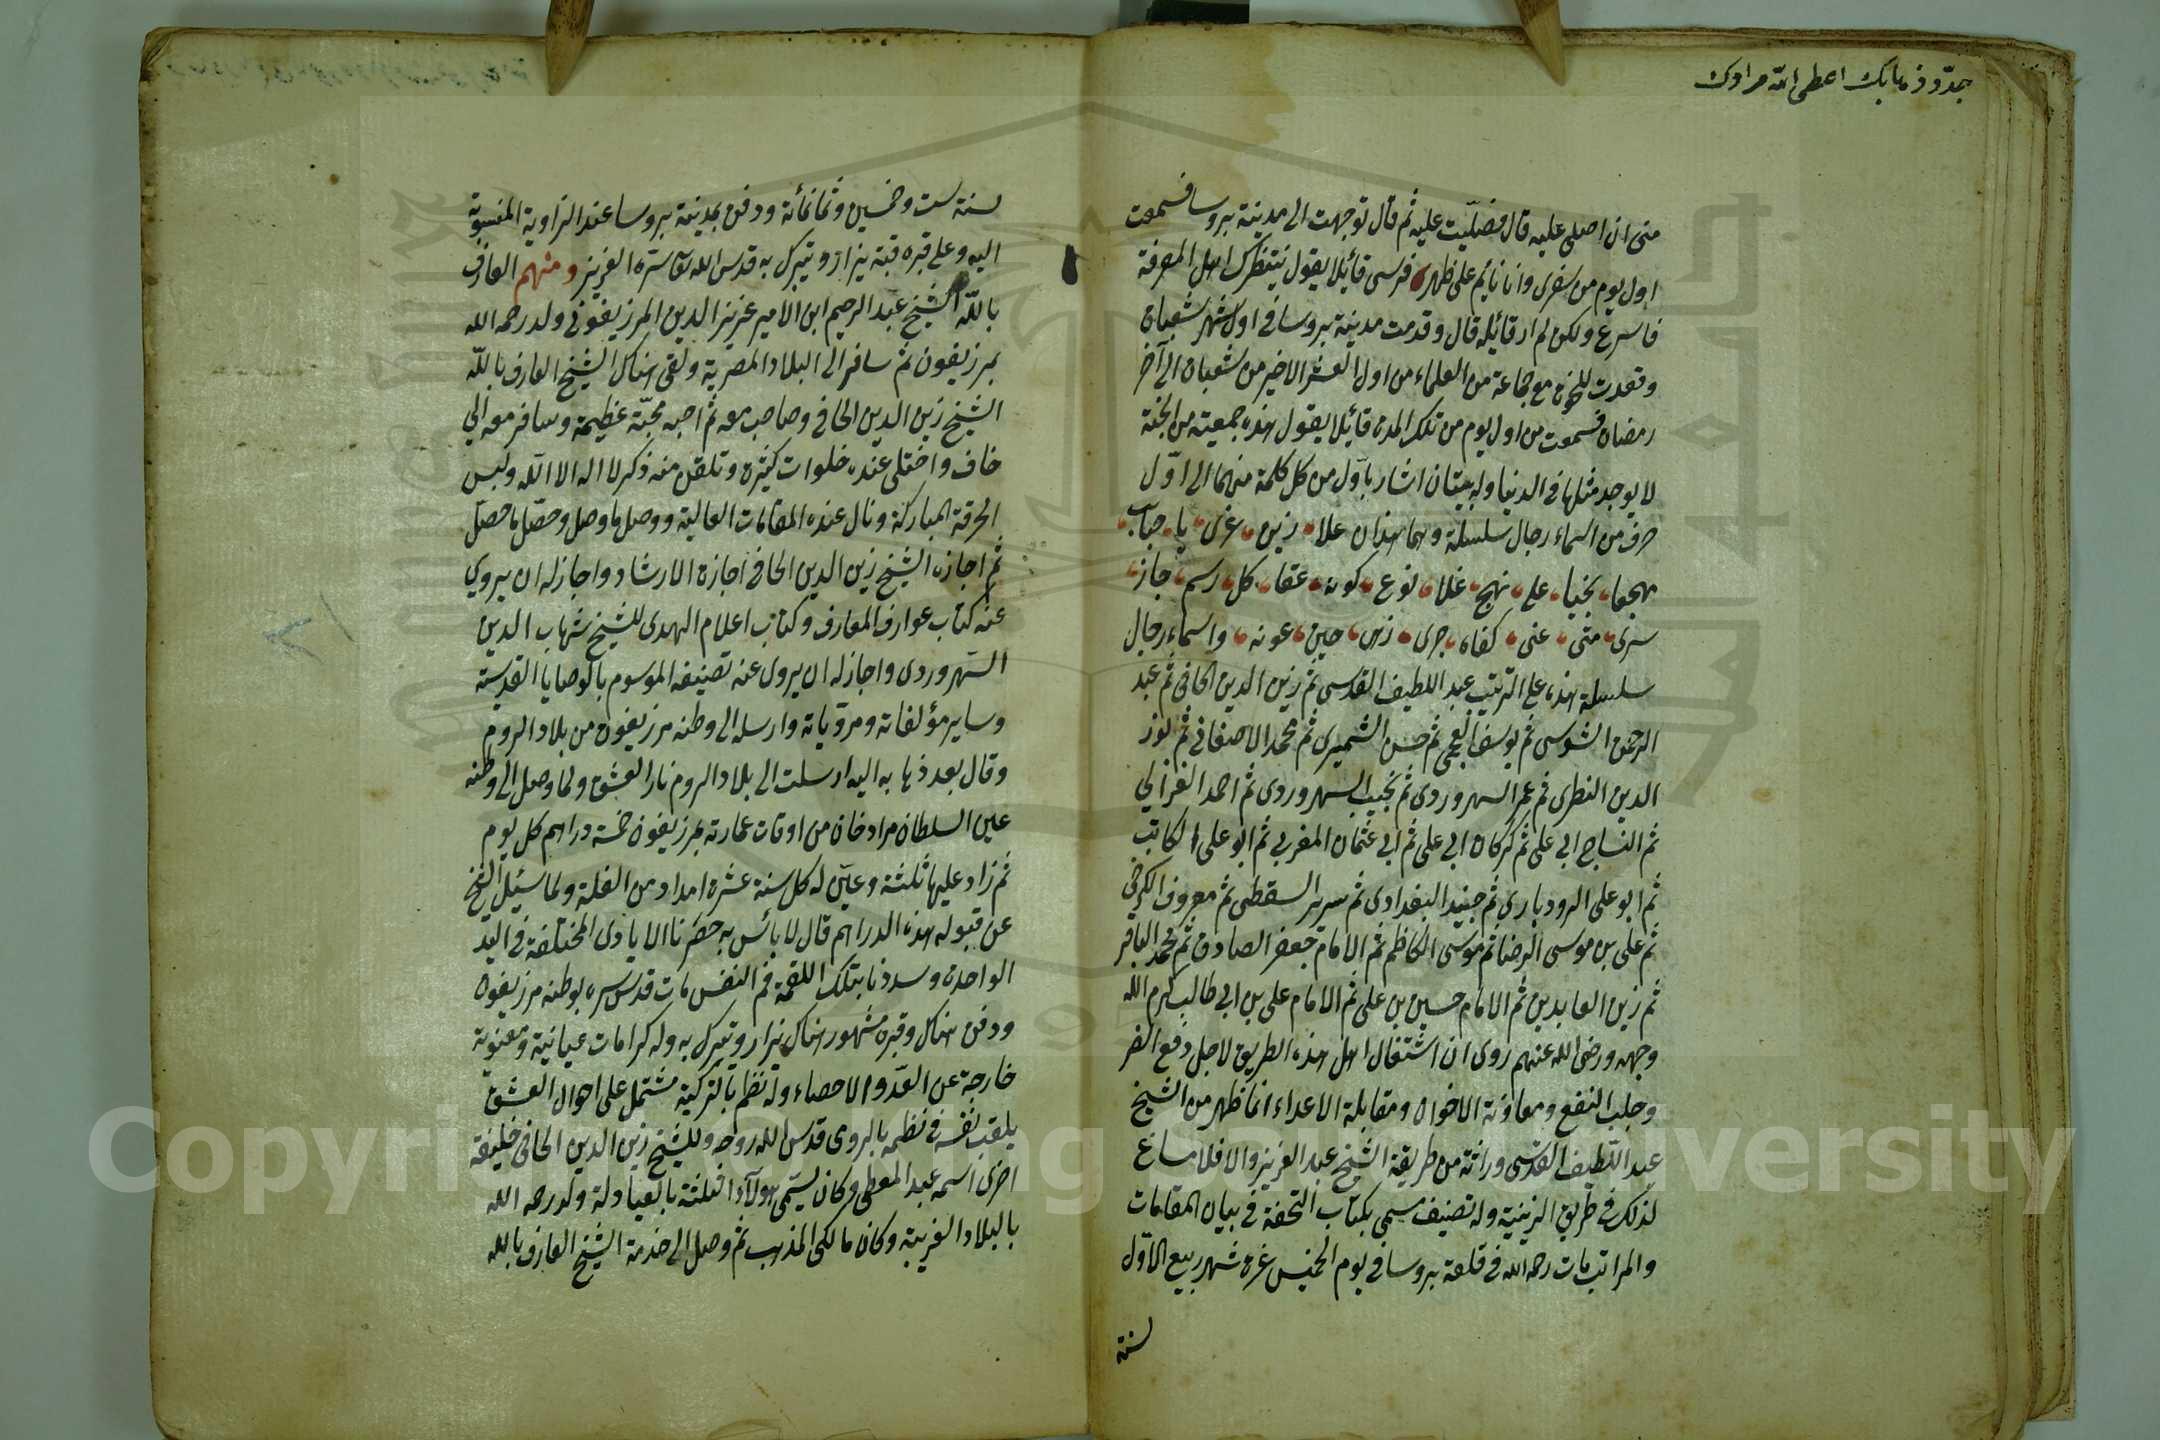 جدّ وزمانك اعطى الله مرادك
منى ان اصلى عليه قال فصلّيت عليه ثم قال توجهت الى مدينة بروسا فسمعت
اول يوم من سفرى وانا نايم على ظهر فرسى قائلا يقول ينتظرك اهل المعرفة
فاسرع ولكن لم ار قائله قال وقدمت مدينة بروسا فى اول شهر شعبان
وقعدت للخلوة مع جماعة من العلماء من اول العشر الاخير من شعبان الى آخر
رمضان فسمعت من اول يوم من تلك المدة قائلا يقول هذه جمعية من الجنة
لا يوجد مثلها فى الدنيا وله بيتان اشار باوّل من كل كلمة منهما الى اوّل
حرف من اسماء رجال سلسلة وهما هذان علا زين غزى يا حباب
بخيا على نهج غلا نوع كون عقا كل رسم جاز
سرى متى عنى كفاه جرى زس حين عونه واسماء رجال
سلسلة هذه على الترتيب عبد اللطيف القدسى ثم زين الدين الخافى ثم عبد
الرحمن الشوسى ثم يوسف العجمى ثم حسن الشميرى ثم محمد الاصفافى ثم نور
الدين النطرى ثم عمر السهروردى ثم نجيب السهروردى ثم احمد الغزالي
ثم النساج ابي على ثم كركان ابي على ثم ابي عثمان المغربي ثم ابو على الكاتب
ثم ابو على الرودبارى ثم جنيد البغدادى ثم سرير السقطى ثم معروف الكرخى
ثم على بن موسى الرضا ثم موسى الكاظم ثم الامام جعفر الصادق ثم محمد الباقر
ثم زين العابدين ثم الامام حسين بن على ثم الامام على بن ابي طالب كرم الله
وجهه ورضى الله عنهم روى ان اشتغال اهل هذه الطريق لاجل دفع الضر
وجلب النفع ومعاونة الاخوان ومقابلة الاعداء انما ظهر من الشيخ
عبد اللطيف القدسى وراثة من طريقة الشيخ عبد العزيز والا فلا مساغ
لذلك فى طريق الزينية وله تصنيف سمى بكتاب التحفة فى بيان المقامات
والمراتب مات رحمه الله فى قلعة بروسا فى يوم الخميس غرة شهر ربيع الاوّل
سنة
سنة ست وخمسين وثمانمأئة ودفن بمدينة بروسا عند الزاوية المنسوبة
اليه وعلى قبره قبة يزار ويتبرك به قدس الله تعا سره العزيز ومنهم العارف
بالله الشيخ عبد الرحيم ابن الامير عزيز الدين المرزيفونى ولد رحمه الله
بمرزيفون ثم سافر الى البلاد المصرية ولقى هناك الشيخ العارف بالله
الشيخ زين الدين الخافى وصاحب معه ثم احبه محبّة عظيمة وسافر معه الي
خاف واختلى عنده خلوات كثيرة وتلقن منه ذكر لا اله الا الله ولبس
الخرقة المباركة ونال عنده المقامات العالية ووصل ما وصل وحصّل ما حصّل
ثم اجازه الشيخ زين الدين الخافى اجازة الارشاد واجاز له ان يروي
عنه كتاب عوارف المعارف وكتاب اعلام الهدى للشيخ شهاب الدين
السهروردى واجاز له ان يروى عنه تصنيفه الموسوم بالوصايا القدسية
وساير مؤلفاته ومروّياته وارسله الى وطنه مرزيفون من بلاد الروم
وقال بعد ذهابه اليه ارسلت الى بلاد الروم نار العشق ولما وصل الى وطنه
عين السلطان مراد خان من اوقات عمارته بمرزيفون خمسة دراهم كل يوم
ثم زاد عليها ثلثة وعيّن له كل سنة عشرة امداد من الغلة ولما سئل الشيخ
عن قبوله هذه الدراهم قال لا بأس به حضرنا الايادى المختلفة فى اليد
الواحدة وسددنا بتلك اللقمة فم النفس مات قدس سره بوطنه مرزيفون
ودفن هناك وقبره مشهور هناك يزار ويتبرك به وله كرامات عيانية ومعنوية
خارجة عن العدّ والاحصاء وله نظم بالتركية مشتمل على احوال العشق
يلقب نفسه فى نظمه بالرومى قدس الله روحه وللشيخ زين الدين الخافى خليفة
اخرى اسمه عبد المعطى وكان يسمّى هولآء الثلثة بالعبادلة ولد رحمه الله
بالبلاد الغربية وكان مالكى المذهب ثم وصل الى خدمة الشيخ العارف بالله
Copyright © King Saud University